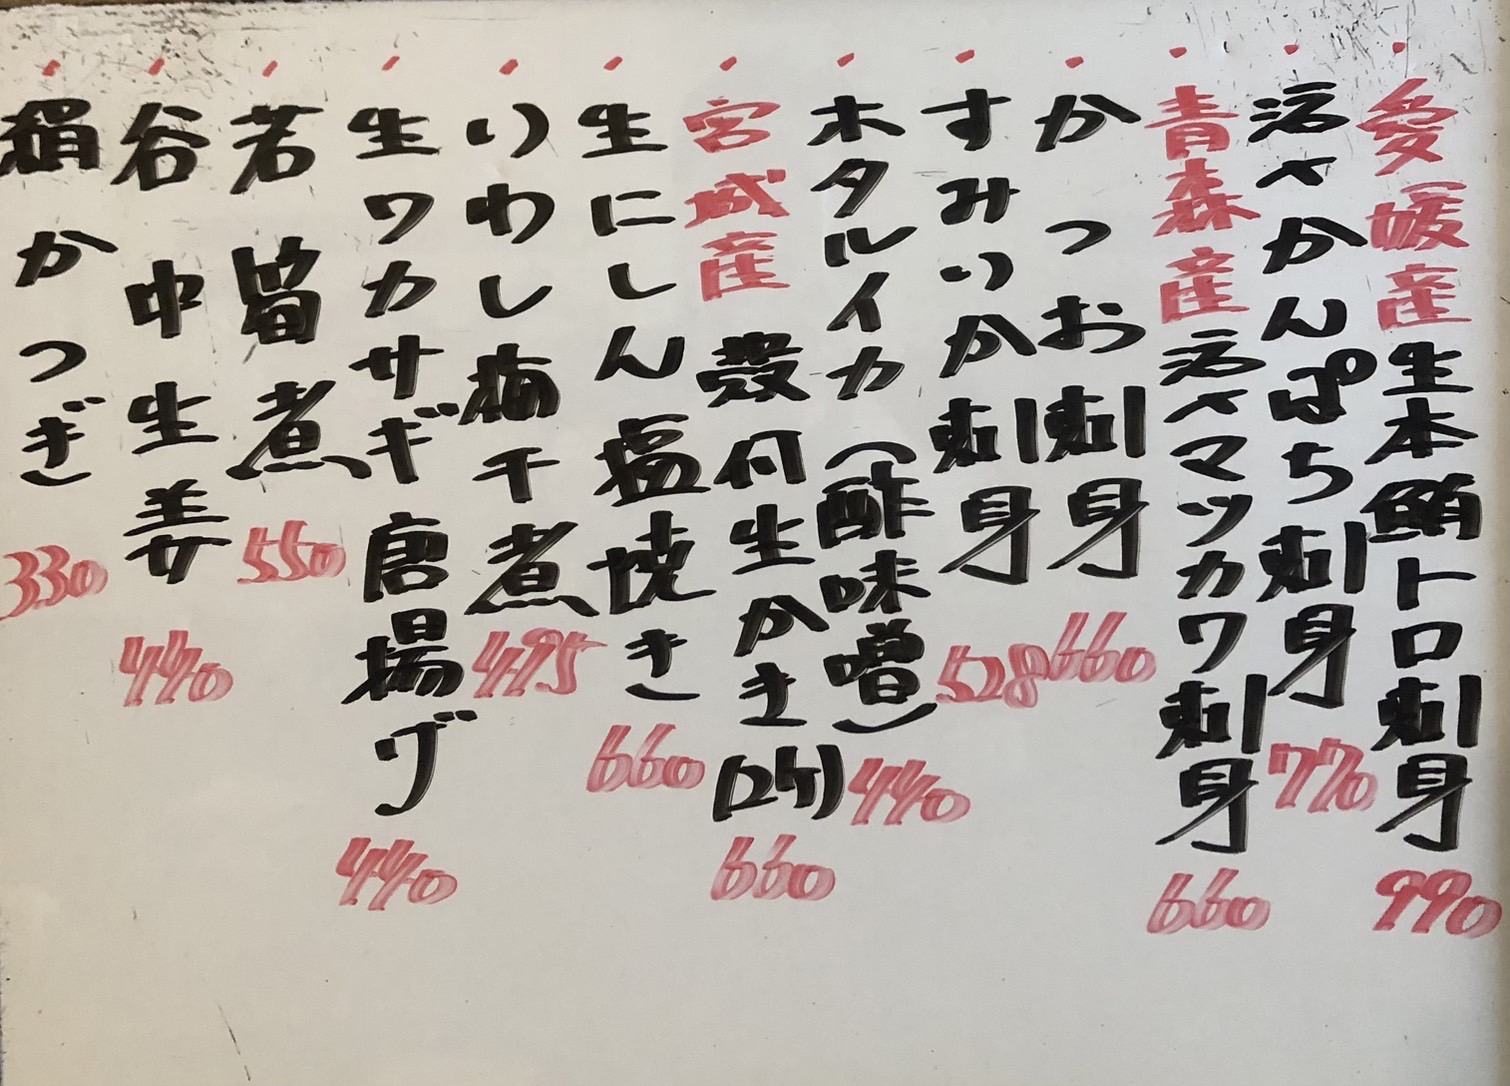 ・愛媛産生本鮪トロ刺身 990
・活〆かんぱち刺身 770
・青森産活〆マツカワ刺身 660
・かつお刺身 660
・すみいか刺身 528
・ホタルイカ(酢味噌) 440
・宮城産 殻付生かき(2ケ) 660
・生にしん塩焼き 660
・いわし梅干煮 495
・生ワカサギ唐揚げ 440
・若筍煮 550
・谷中生姜 440
・絹かつぎ 330